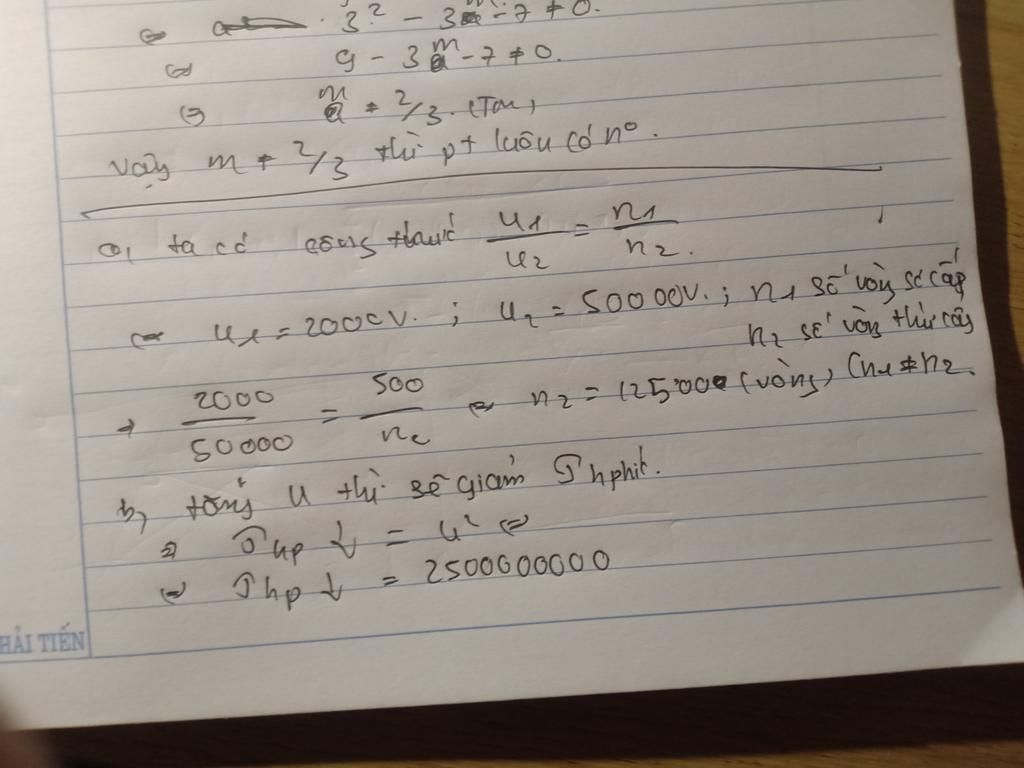 ⇔ 3² - 3m - 7 ≠ 0.
⇔ 9 - 3m - 7 ≠ 0.
⇔ m ≠ 2/3. (TM)
vậy m ≠ 2/3 thì pt luôn có n⁰.
a, ta có công thức u1/u2 = n1/n2.
⇔ u1 = 2000V. ; u2 = 50000V. ; n1 số vòng sơ cấp
n2 số vòng thứ cấp
→ 2000/50000 = 500/n2 ⇔ n2 = 12500 (vòng) (n1 ≠ n2.
b, tăng U thì sẽ giảm P hphit.
⇒ P hp ↓ = u² ⇔
⇔ P hp ↓ = 2500000000
HẢI TIẾN